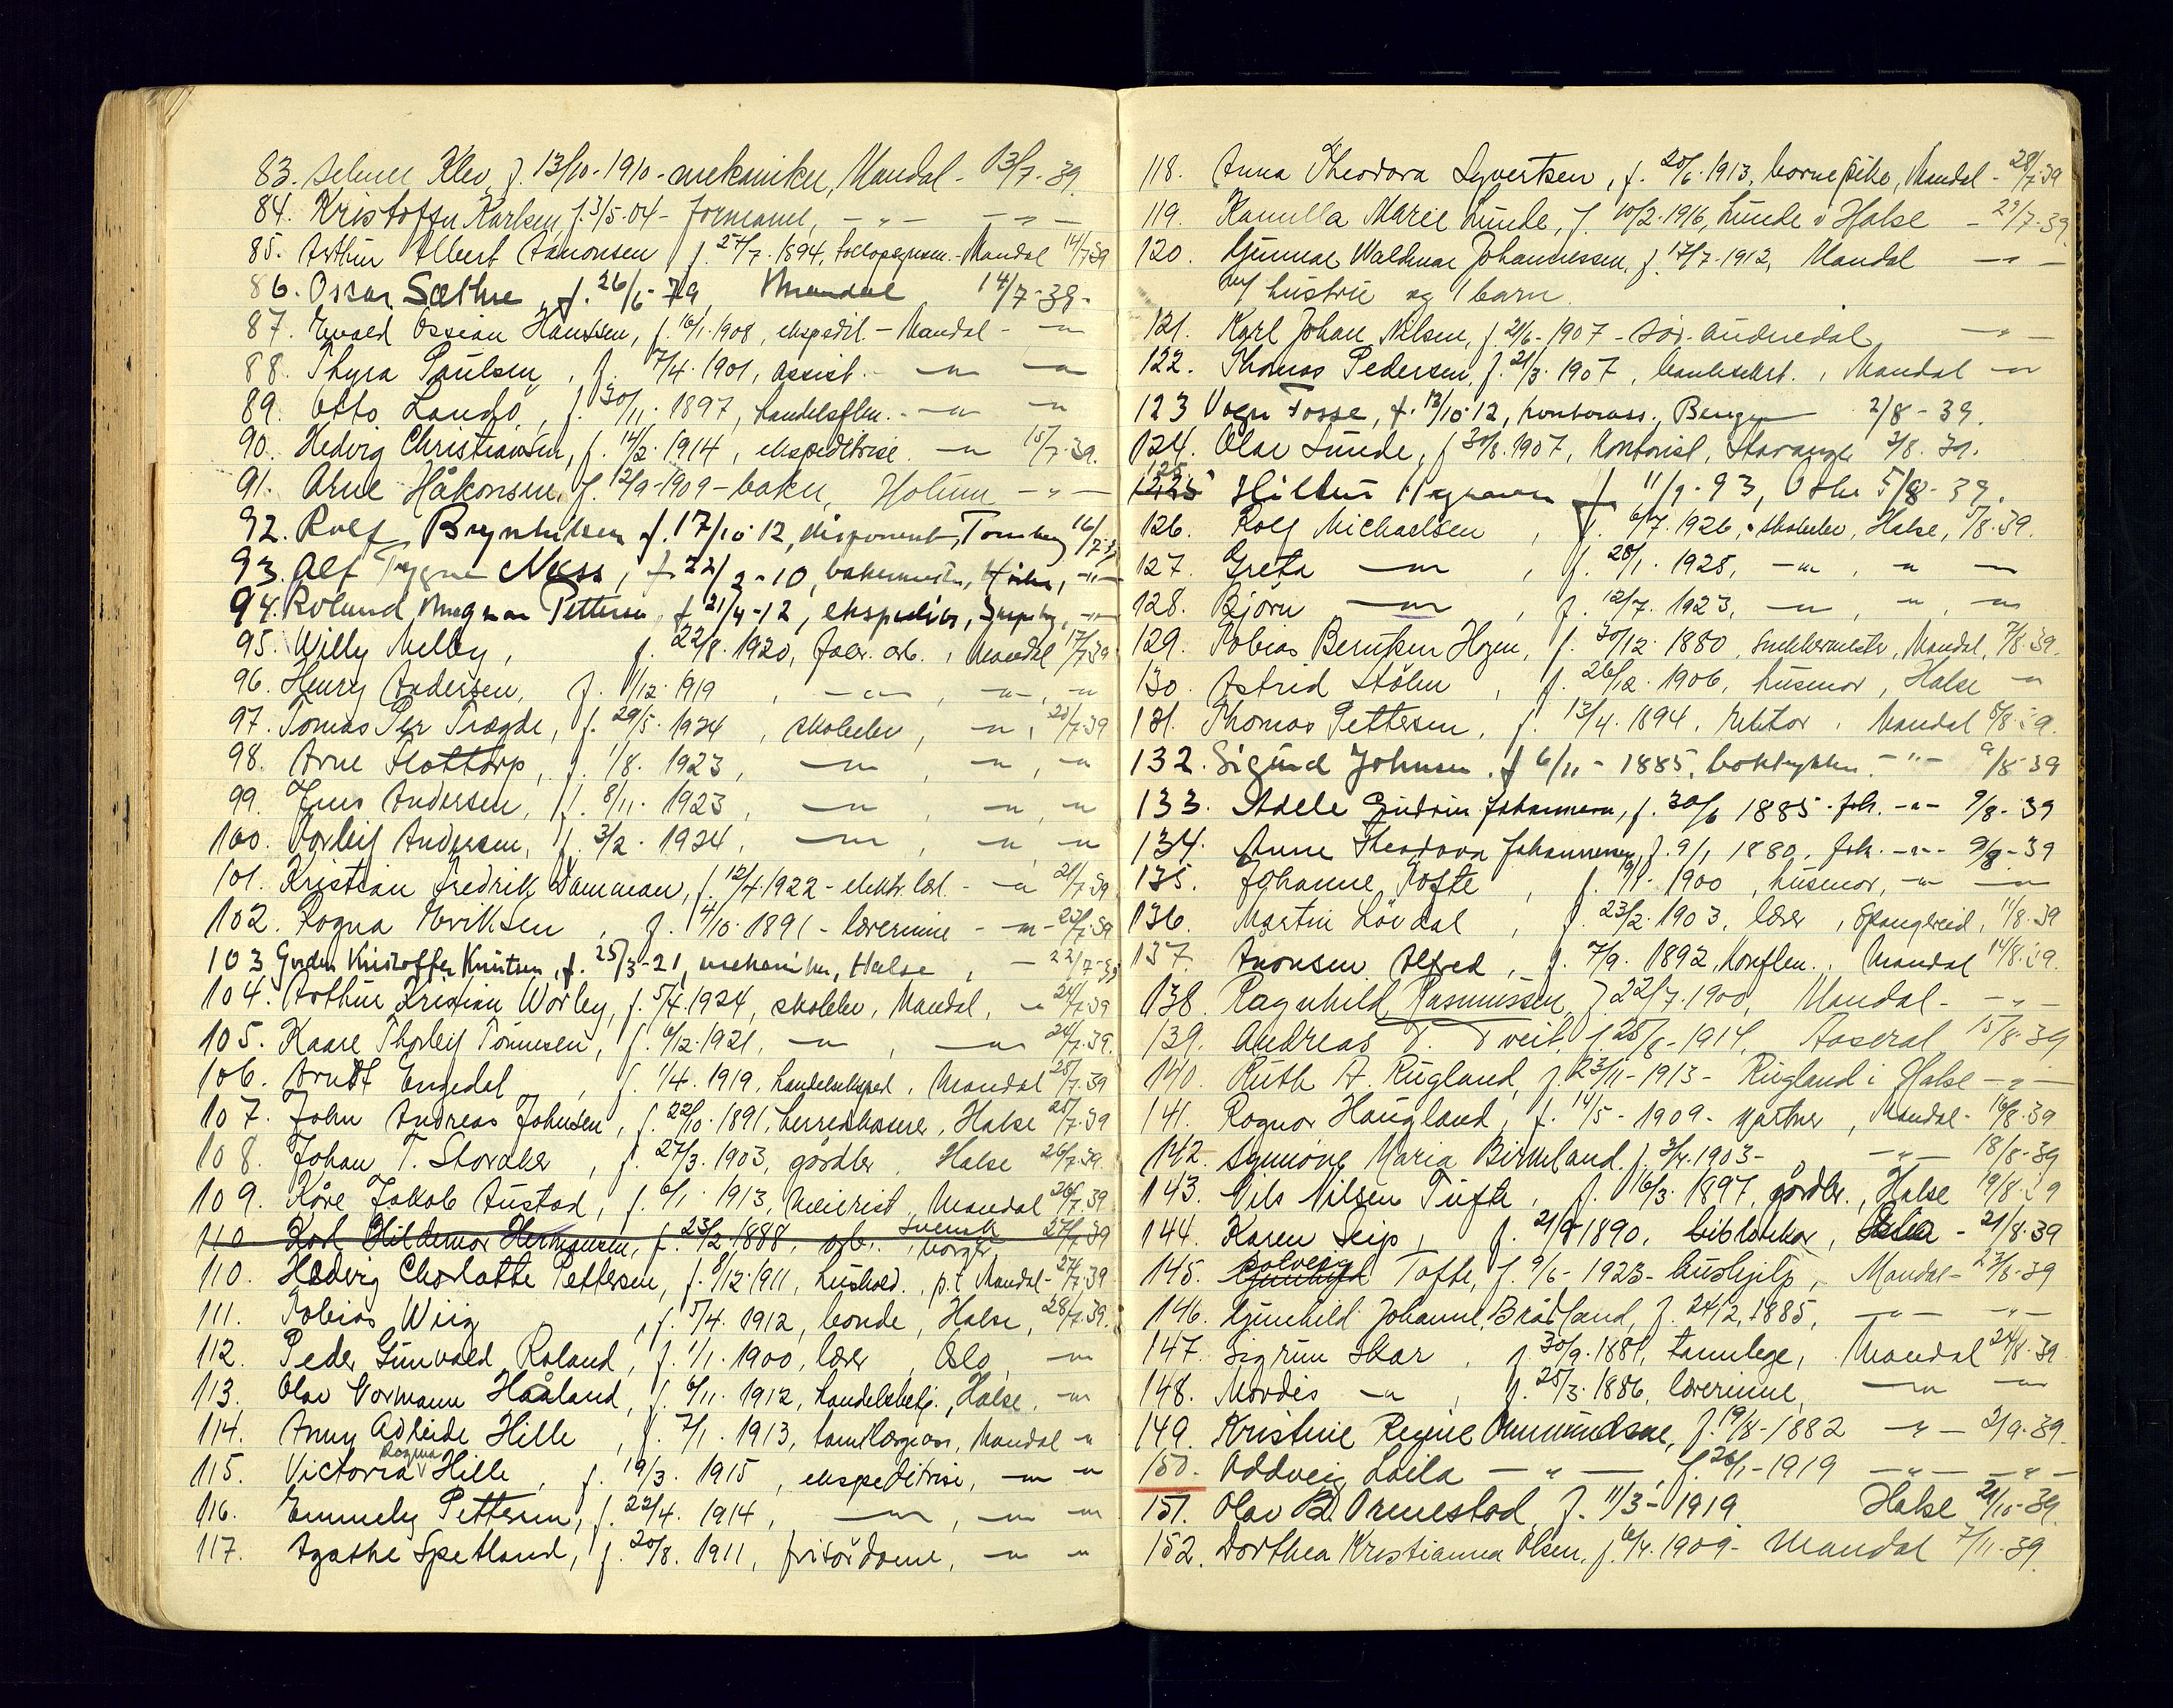 83. Selmer Klev, f. 13/10-1910 - mekaniker, Mandal - 13/7-39
84. Kristoffer Karlsen, f. 3/5-04 - formann, - " - - " -
85. Arthur Albert Aanonsen f. 27/7. 1894, Mandal 14/7-39
86. Oscar Sæthre, f. 26/6-79, Mandal 14/7-39-
87. Evald Ossian Hanssen, f. 16/1. 1908, ekspedit. - Mandal - - " -
88. Thyra Paulsen, f. 7/4. 1901, assist. - " - - " -
89. Otto Landø, f. 30/11. 1897, handelsflm. - " - - " -
90. Hedvig Christiansen, f. 14/2. 1914, ekspeditrise - " - 15/7-39.
91. Arne Håkonsen, f. 12/9-1909 - baker, Holum - " -
92. Rolf Brynhilsen f. 17/10-12, disponent, Tønsberg 16/7-39
93. Alf Trygve Næss, f. 22/2-10, bakermester, - " -
94. Roland Magnar Pettersen, f. 21/4-12, ekspeditør, - " -
95. Willy Melby, f. 22/8. 1920, fabr. arb., Mandal 17/7-39
96. Henry Andersen, f. 1/12. 1919, - " -, - " -, - " -
97. Tomas Per Trægde, f. 29/5. 1924, skoleelev, - " -, 20/7-39
98. Arne Flottorp, f. 1/8. 1923, - " -, - " -, - " -
99. Jens Andersen, f. 8/11. 1923, - " -, - " -, - " -
100. Torleif Andersen, f. 3/2. 1924, - " -, - " -, - " -
101. Kristian Fredrik Damman, f. 12/4. 1922 - elektr. lærl. - " - 21/7-39
102. Ragna Eriksen, f. 4/10. 1891 - lærerinne - " - 22/7-39
103 Gordon Kristoffer Knutsen, f. 25/3-21, mekaniker, Halse, - 22/7-39
104. Arthur Kristian Worley, f. 5/4. 1924, skoleelev, Mandal, - 24/7-39
105. Kaare Thorleif Tønnesen, f. 6/12. 1921, - " -, - " - 24/7-39.
106. Arndt Engedal, f. 1/4. 1919, handelseksped., Mandal 25/7-39
107. John Andreas Johnsen, f. 22/10. 1891, herredskasserer, Halse 25/7-39
108. Johan T. Storaker, f. 27/3. 1903, gårdbr. Halse 26/7-39.
109. Kåre Jakob Austad, f. 6/1. 1913, meierist, Mandal 26/7-39
110. Karl Hildemar Hermansen, f. 23/2. 1888, arb., svensk borger, 27/7-39
110. Hedvig Charlotte Pettersen, f. 8/12. 1911, hushold., p.t. Mandal - 27/7-39
111. Tobias Wiig, f. 5/4. 1912, bonde, Halse, 28/7-39.
112. Peder Gunvald Roland, f. 1/1. 1900, lærer, Oslo, - " -
113. Olav Normann Haaland, f. 6/11. 1912, handelsbetj., Halse, - " -
114. Anny Adleide Hille, f. 7/1. 1913, tannlægeass., Mandal - " -
115. Victoria Ragna Hille, f. 19/3. 1915, ekspeditrise, - " - - " -
116. Emmely Pettersen, f. 22/4. 1914, - " -, - " - - " -
117. Agathe Spetland, f. 20/8. 1911, frisördame, - " - - " -
118. Anna Theodora Syvertsen, f. 20/6. 1913, barnepike, Mandal - 28/7-39
119. Kamilla Marie Lunde, f. 10/2. 1916, Lunde i Halse - 29/7-39.
120. Gunnar Waldemar Johannessen, f. 17/7-1912, Mandal - " -
m/ hustru og 1 barn.
121. Karl Johan Nilsen, f. 21/6-1907 - Sör-Audnedal - " -
122. Thomas Pedersen, f. 21/3. 1907, banksekret., Mandal - " -
123 Vogn Fosse, f. 13/10-12, kontorass., Bergen 2/8-39.
124. Olav Lunde, f. 30/8. 1907, kontorist, Stavanger 3/8. 39.
125 f. 11/9-93, 5/8-39.
126. Rolf Michaelsen, f. 6/7. 1926, skoleelev, Halse, 5/8-39.
127. Greta - " -, f. 28/1. 1925, - " -, - " - - " -
128. Björn - " -, f. 12/7. 1923, - " -, - " -, - " -
129. Tobias Berntsen Hagen, f. 30/12. 1880, snekkermester, Mandal, 7/8-39.
130. Astrid Stölen, f. 26/12. 1906, husmor, Halse - " -
131. Thomas Pettersen, f. 13/4. 1894, rektor, Mandal 8/8-39.
132. Sigurd Johnsen, f. 6/11-1885, boktrykker. - " - 9/8-39
133. Adele Gudrun Johannesen, f. 30/6 1885. frk. - " - 9/8-39
134. Anne Theodora Johannesen, f. 9/1 1880, frk. - " - 9/8-39
135. Johanne Tofte, f. 19/1. 1900, husmor, - " - - " -
136. Martin Lövdal, f. 23/2. 1903, lærer, Spangereid, 11/8-39
137. Aaronsen Alfred, f. 7/9. 1892, Mandal 14/8-39.
138. Ragnhild Rasmussen, f. 22/7. 1900, Mandal - - " -
139. Andreas T. Tveit, f. 28/8-1914, Aaseral 15/8-39
140. Ruth A. Rugland, f. 23/11-1913 - Rugland i Halse - " -
141. Ragnar Haugland, f. 14/5-1909 - gartner, Mandal - 16/8-39
142. Synnöve Maria Birkeland, f. 3/4. 1903 - - " - 18/8-39
143. Nils Nilsen Tufte, f. 16/3. 1897, gårdbr., Halse 19/8-39
144. Karen Seip, f. 21/9 1890, bibliotekar, Oslo - 21/8-39
145. Solveig Tofte, f. 9/6-1923 - hushjelp, Mandal - 23/8-39
146. Gunhild Johanne Bråtland, f. 24/12, 1885, - " - - " -
147. Sigrun Skar, f. 30/9. 1881, tannlege, Mandal 24/8-39
148. Nordis - " -, f. 25/3. 1886, lærerinne, - " - - " -
149. Kristine Regine Ommundsen, f. 19/8-1882 - " - 2/9-39.
150. Oddveig Laila - " -, f. 26/1-1919 - " - - " -
151. Olav B. Ormestad, f. 11/3-1919. Halse 21/10-39.
152. Dorthea Kristianna Olsen, f. 6/4. 1909 - Mandal 7/11-39.